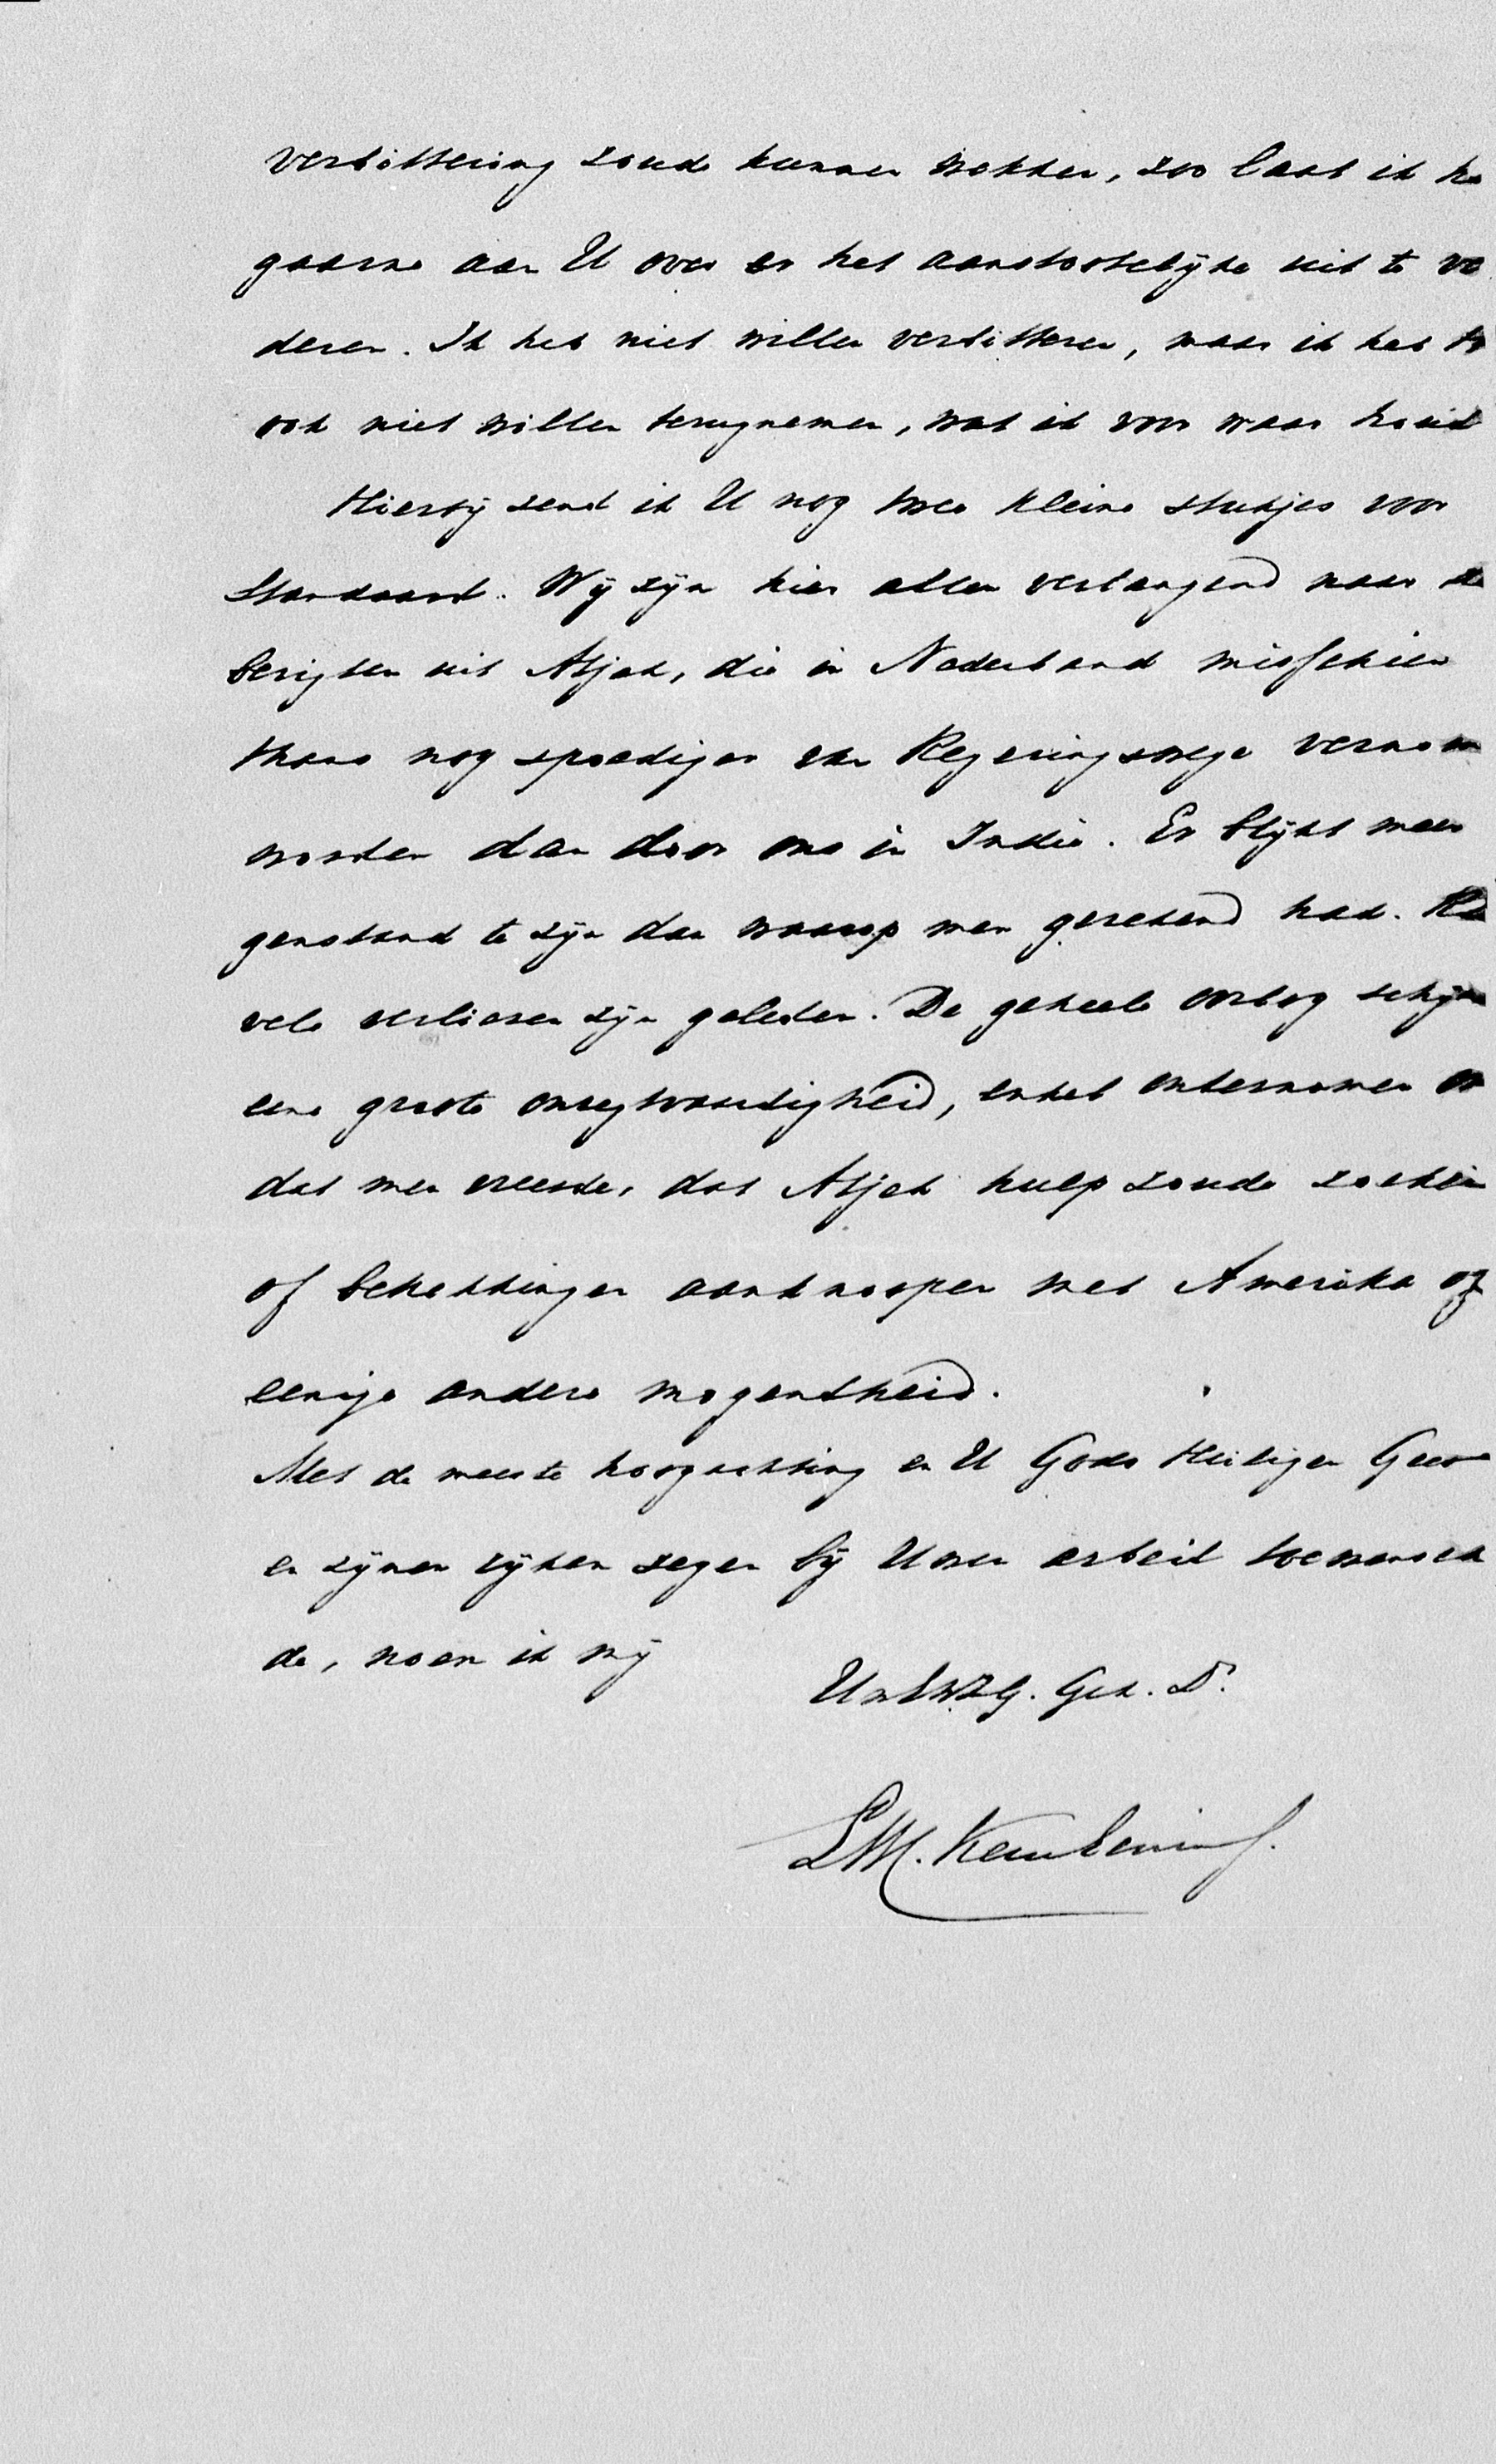 verbittering zoude kunnen wekken, zoo laat ik he
gaarne aan U over er het aanstootelijke uit te ve
deren. Ik heb niet willen verbitteren, maar ik heb
ook niet willen terugnemen, wat ik voor waar houd
Hierbij zend ik U nog twee kleine stukjes voor
Standaard. Wij zijn hier allen verlangend naar de
berigten uit Atjeh, die in Nederland misschien
thans nog spoediger van Regeringswege vernom
worden dan door ons in Indie. Er blijkt meer
genstand te zijn dan waarop men gerekend had.
vele verliezen zijn geleden. De geheele oorlog schijn
eene groote onregtvaardigheid, enkel ondernomen om
dat men vreesde, dat Atjeh hulp zoude zoeken
of betrekkingen aanknoopen met Amerika of
eenige andere mogendheid.
Met de meeste hoogachting en U Gods Heiligen Gees
en zijnen rijken zegen bij Uwen arbeid toewensch
de, noem ik mij
UwEWZG. Get. Dr.
L.M. Keuchenius.